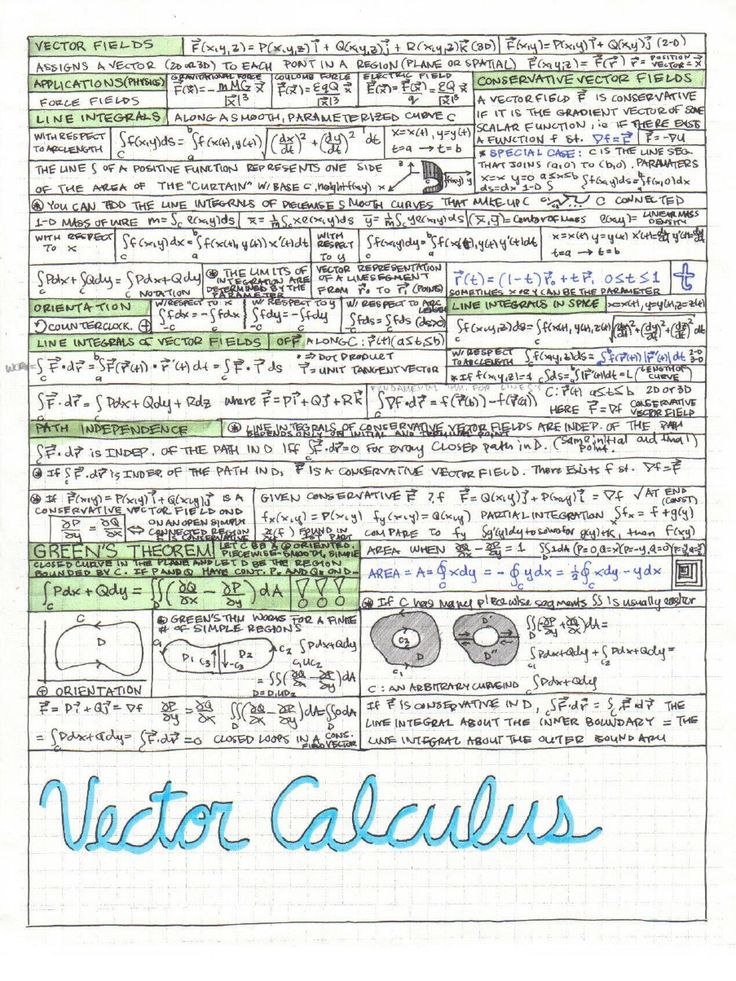 VECTOR FIELDS F⃗(x,y,z) = P(x,y,z)i⃗ + Q(x,y,z)j⃗ + R(x,y,z)k⃗ (3D) F⃗(x,y) = P(x,y)i⃗ + Q(x,y)j⃗ (2-D)
ASSIGNS A VECTOR (2D OR 3D) TO EACH POINT IN A REGION (PLANE OR SPATIAL) F⃗(x,y,z) = F⃗(r⃗) r⃗ = POSITION VECTOR = x⃗
APPLICATIONS (PHYSICS) GRAVITATIONAL FORCE COULOMB FORCE ELECTRIC FIELD
FORCE FIELDS F⃗(x⃗) = -mMG x⃗ / |x⃗|³ F⃗(x⃗) = εqQ x⃗ / |x⃗|³ E⃗(x⃗) = F⃗(x⃗)/q = εQ x⃗ / |x⃗|³
CONSERVATIVE VECTOR FIELDS
A VECTOR FIELD F⃗ IS CONSERVATIVE
IF IT IS THE GRADIENT VECTOR OF SOME
SCALAR FUNCTION, ie IF THERE EXISTS
A FUNCTION f st. ∇f = F⃗ F⃗ = -∇U
* SPECIAL CASE: C IS THE LINE SEG.
THAT JOINS (a,0) TO (b,0). PARAMATERS
x = x y = 0 a ≤ x ≤ b
ds = dx 1-D ∫ ∫f(x,y)ds = ∫f(x,0)dx
LINE INTEGRALS ALONG A SMOOTH, PARAMETERIZED CURVE C
WITH RESPECT TO ARCLENGTH ∫f(x,y)ds = ∫f(x(t), y(t)) √((dx/dt)² + (dy/dt)²) dt x = x(t), y = y(t) t = a → t = b
THE LINE ∫ OF A POSITIVE FUNCTION REPRESENTS ONE SIDE
OF THE AREA OF THE "CURTAIN" W/ BASE C, height f(x,y)
YOU CAN ADD THE LINE INTEGRALS OF PIECEWISE SMOOTH CURVES THAT MAKE UP C C CONNECTED
1-D MASS OF WIRE m = ∫ρ(x,y)ds x̄ = 1/m ∫xρ(x,y)ds ȳ = 1/m ∫yρ(x,y)ds (x̄, ȳ) = center of mass ρ(x,y) = LINEAR MASS DENSITY
WITH RESPECT TO x ∫f(x,y)dx = ∫f(x(t), y(t)) x'(t)dt WITH RESPECT TO y ∫f(x,y)dy = ∫f(x(t), y(t)) y'(t)dt x = x(t) y = y(t) x'(t) = dx/dt y'(t) = dy/dt t = a → t = b
∫Pdx + ∫Qdy = ∫Pdx + Qdy NOTATION
THE LIMITS OF INTEGRATION ARE DETERMINED BY THE PARAMETER
VECTOR REPRESENTATION OF A LINE SEGMENT FROM r⃗₀ TO r⃗₁ (POINTS)
r⃗(t) = (1-t)r⃗₀ + t r⃗₁ 0 ≤ t ≤ 1
SOMETIMES X OR Y CAN BE THE PARAMETER t
ORIENTATION COUNTERCLOCK. ⊕
W/ RESPECT TO X ∫fdx = -∫fdx W/ RESPECT TO Y ∫fdy = -∫fdy W/ RESPECT TO ARC LENGTH ∫fds = ∫fds (ds>0)
LINE INTEGRALS IN SPACE x = x(t), y = y(t), z = z(t)
∫f(x,y,z)ds = ∫f(x(t), y(t), z(t)) √((dx/dt)² + (dy/dt)² + (dz/dt)²) dt
LINE INTEGRALS OF VECTOR FIELDS OF F⃗ ALONG C: r⃗(t) (a ≤ t ≤ b)
WORK = ∫F⃗·dr⃗ = ∫F⃗(r⃗(t))·r⃗'(t)dt = ∫F⃗·T⃗ ds • ⇒ DOT PRODUCT T⃗ = UNIT TANGENT VECTOR
W/ RESPECT TO ARCLENGTH ∫f(x,y,z)ds = ∫f(r⃗(t))|r⃗'(t)|dt 2-D 3-D
* If f(x,y,z) = 1 ∫ds = ∫|r⃗'(t)|dt = L (LENGTH OF CURVE)
∫F⃗·dr⃗ = ∫Pdx + Qdy + Rdz where F⃗ = Pi⃗ + Qj⃗ + Rk⃗
FUNDAMENTAL THM. FOR LINE ∫
∫∇f·dr⃗ = f(r⃗(b)) - f(r⃗(a)) C: r⃗(t) a ≤ t ≤ b 2D OR 3D HERE F⃗ = ∇f CONSERVATIVE VECTOR FIELD
PATH INDEPENDENCE * LINE INTEGRALS OF CONSERVATIVE VECTOR FIELDS ARE INDEP. OF THE PATH
DEPENDS ONLY ON INITIAL AND TERMINAL POINT
∫F⃗·dr⃗ IS INDEP. OF THE PATH IN D IFF ∫F⃗·dr⃗ = 0 for every CLOSED path in D. (Same initial and final Point.)
If ∫F⃗·dr⃗ is INDEP. OF THE PATH IN D, F⃗ IS A CONSERVATIVE VECTOR FIELD. There Exists f st. ∇f = F⃗
If F⃗(x,y) = P(x,y)i⃗ + Q(x,y)j⃗ IS A
CONSERVATIVE VECTOR FIELD ON D
∂P/∂y = ∂Q/∂x ⇔ ON AN OPEN SIMPLY CONNECTED REGION
GIVEN CONSERVATIVE F⃗ ? f F⃗ = Q(x,y)i⃗ + P(x,y)j⃗ = ∇f √ AT END (CONST)
fx(x,y) = P(x,y) fy(x,y) = Q(x,y) PARTIAL INTEGRATION ∫fx = f + g(y)
COMPARE TO fy ∫g'(y)dy to solve for g(y)+k, then f(x,y)
GREEN'S THEOREM! LET C BE A ⊕ ORIENTED,
PIECEWISE-SMOOTH, SIMPLE
CLOSED CURVE IN THE PLANE AND LET D BE THE REGION
BOUNDED BY C. IF P AND Q HAVE CONT. Py AND Qx ON D—
∫Pdx + Qdy = ∫∫(∂Q/∂x - ∂P/∂y)dA !!!
AREA WHEN ∂Q/∂x - ∂P/∂y = 1 ∫∫1dA (P=0, Q=x) (P=-y, Q=0)
AREA = A = ∮xdy = -∮ydx = ½∮xdy - ydx
* If C has many piecewise segments ∫∫ is usually easier
C D
⊕ ORIENTATION
GREEN'S THM WORKS FOR A FINITE
# OF SIMPLE REGIONS
D₁ C₃ D₂ -C₃ C₂ C₁
∫Pdx + Qdy
C₁∪C₂
= ∫∫(∂Q/∂x - ∂P/∂y)dA
D = D₁∪D₂
C₂ D C₁ D' D''
∫∫(-∂P/∂y + ∂Q/∂x)dA =
∫Pdx + Qdy + ∫Pdx + Qdy =
∫Pdx + Qdy
C: AN ARBITRARY CURVE IN D
F⃗ = Pi⃗ + Qj⃗ = ∇f ∂P/∂y = ∂Q/∂x ∫∫(∂Q/∂x - ∂P/∂y)dA = ∫∫0dA
= ∫Pdx + Qdy = ∫F⃗·dr⃗ = 0 CLOSED LOOPS IN A CONS. FIELD VECTOR
If F⃗ IS CONSERVATIVE IN D, ∫F⃗·dr⃗ = ∫F⃗·dr⃗ THE
LINE INTEGRAL ABOUT THE INNER BOUNDARY = THE
LINE INTEGRAL ABOUT THE OUTER BOUNDARY
Vector Calculus